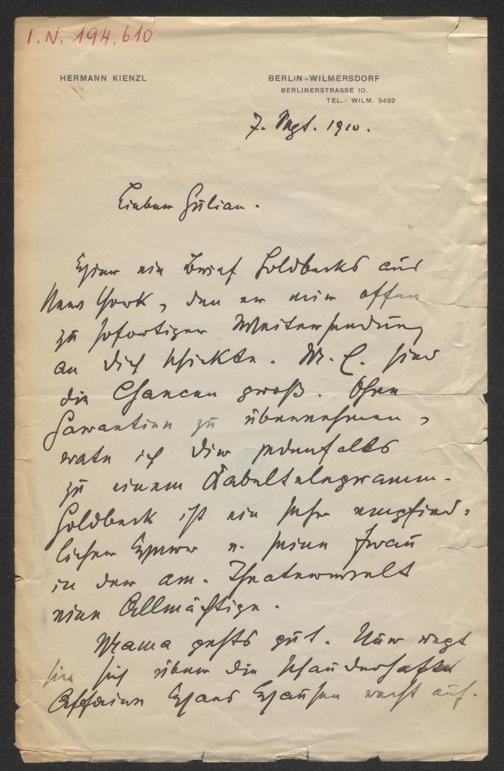 I.N. 194.610
HERMANN KIENZL
BERLIN-WILMERSDORF
BERLINERSTRASSE 10.
TEL.: WILM. 5492
7. 1910.
Lieber Julian.
Hier ein Brief Goldbecks aus
New York, den er mir offen
zu sofortiger Weitersendung
an dich schickte. M. E. sind
die Chancen groß. Ohne
Garantien zu übernehmen,
rate ich dir jedenfalls
zu einem Kabeltelegramm.
Goldbeck ist ein sehr empfind-
licher Herr u. seine Frau
in der am. Theaterwelt
eine Allmächtige.
Mama gehts gut. Nur regt
sie sich über die schauderhafte
Affaire Hans Hausen recht auf.